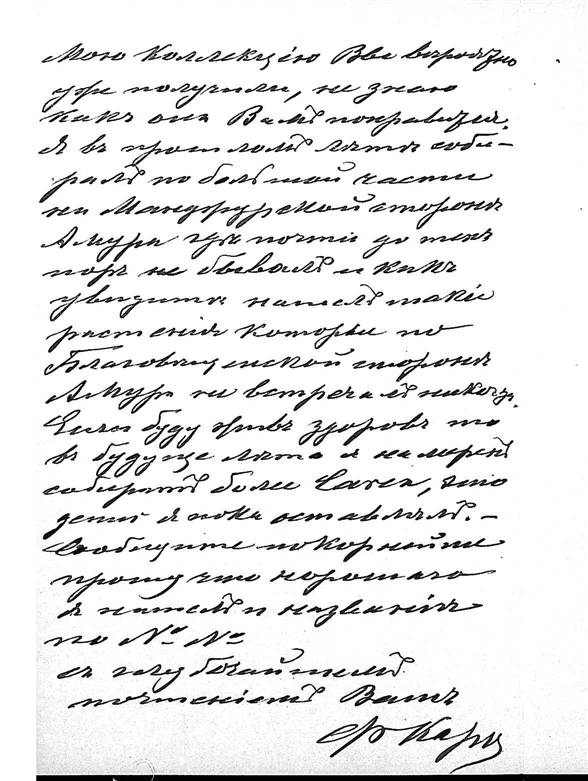 Мою Коллекцію Вы вѣроятно
уже получили, не знаю
какъ она Вамъ понравится.
Я въ прошломъ лѣтѣ соби-
ралъ по большой части
на Манджурской сторонѣ
Амура гдѣ почти до тѣхъ
поръ не бывалъ и какъ
увидите нашелъ такіе
растенія которые по
Благовѣщенской сторонѣ
Амура не встрѣчалъ никогда.
Если буду живъ здоровъ то
въ будуще лѣто я намѣренъ
собирать более Carex, это
я пока оставлялъ. —
Сообщите покорнѣйше
прошу что хорошаго
я нашелъ и названія
по №№
съ глубочайшемъ
почтеніемъ Вашъ
Ф Каро